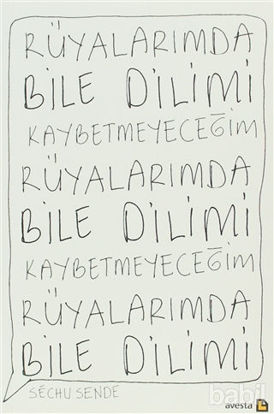 RÜYALARIMDA
BİLE DİLİMİ
KAYBETMEYECEĞİM
RÜYALARIMDA
BİLE DİLİMİ
KAYBETMEYECEĞİM
RÜYALARIMDA
BİLE DİLİMİ
SÉCHU SENDE
avesta
babil